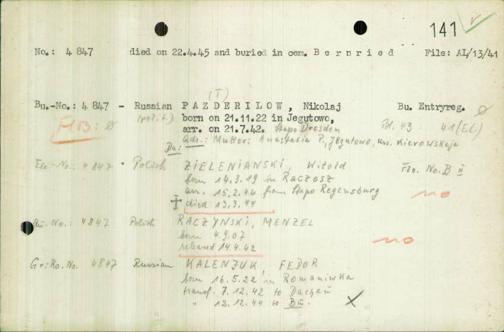 141
No.: 4 847 died on 22.4.45 and buried in cem. B e r n r i e d File: AI/13/41
(T)
Bu.-No.: 4 847 - Russian PAZDERILOW, Nikolaj Bu. Entryreg.
(pol.) born on 21.11.22 in Jegutowo,
arr. on 21.7.42. Stapo Dresden
Adr.: Mutter: Anastasia P., Jegutowo,
Da:
Flo.-No.: 4847 Polish ZIELENIANSKI, Witold Flo. No. B
born 14.3.19 in Raczosz
arr. 15.2.44 from Stapo Regensburg
† died 13.3.44 no
Au. No.: 4847 Polish RACZYNSKI, MENZEL
born 4.9.07 no
released 14.4.42
Gr.Ro.No. 4847 Russian KALENJUK, FEDOR
born 16.5.22 in Romaniwka
transf. 7.12.42 to Dachau
" 12.12.44 to Bu. X